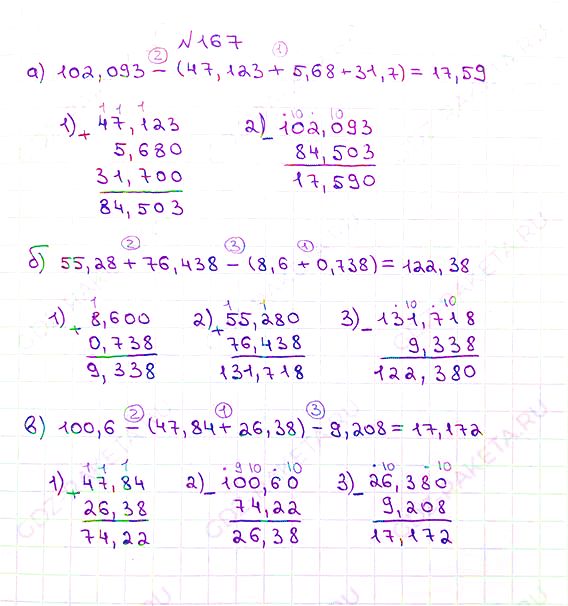 №167
② ①
а) 102,093 − (47,123 + 5,68 + 31,7) = 17,59
1 1 1 · 10 · 10
1) + 47,123 2) − 102,093
5,680 84,503
31,700 17,590
84,503
② ③ ①
б) 55,28 + 76,438 − (8,6 + 0,738) = 122,38
1 1 1 · 10 · 10
1) + 8,600 2) + 55,280 3) − 131,718
0,738 76,438 9,338
9,338 131,718 122,380
② ① ③
в) 100,6 − (47,84 + 26,38) − 9,208 = 17,172
1 1 1 · 9 10 · 10 · 10 · 10
1) + 47,84 2) − 100,60 3) − 26,380
26,38 74,22 9,208
74,22 26,38 17,172